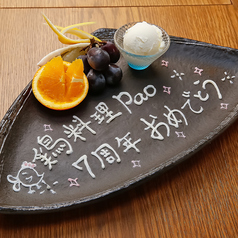 鶏料理 Pao
7周年 おめでとう